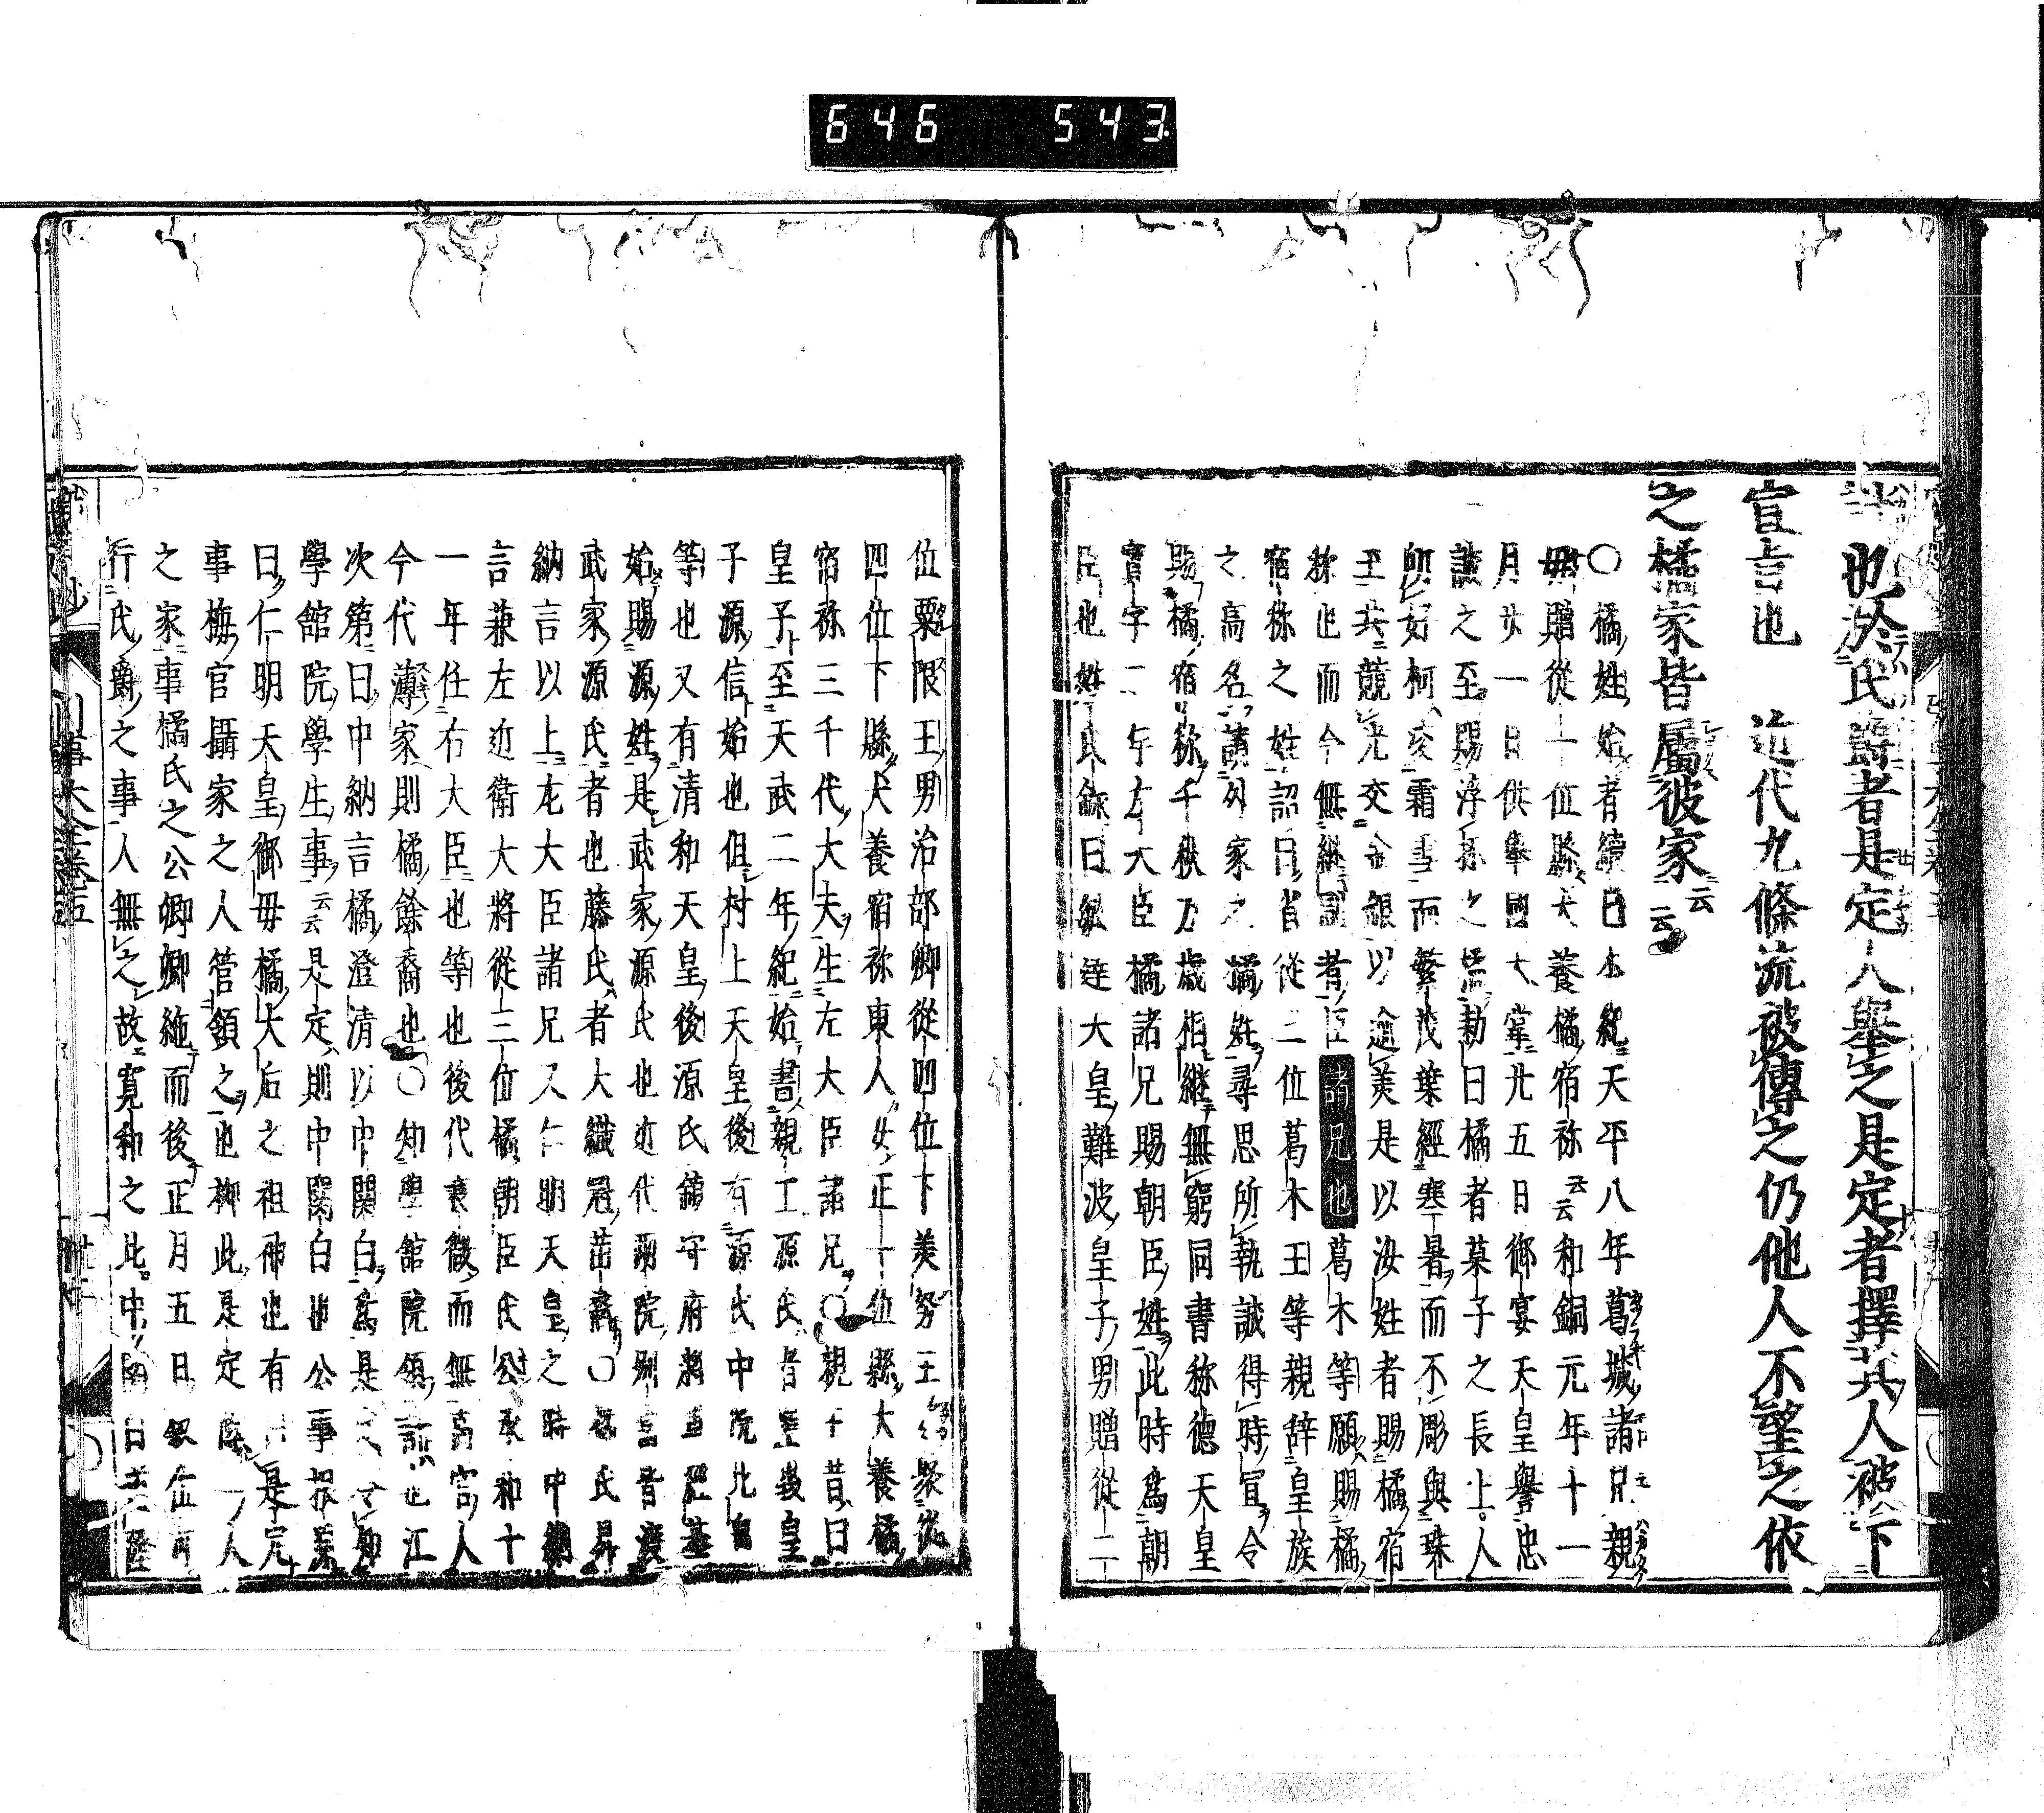 646 543
也於氏爵者是定人舉之是定者擇其人被下
宣言也 近代九條流被傳之仍他人不望之依
之橘家皆屬彼家云云
○橘姓始者續日本紀天平八年葛城諸兄親
母贈從一位縣犬養橘宿祢云云和銅元年十一
月廿一日供奉國大掌廿五日御宴天皇譽忠
誠之至賜浮盃之橘勅曰橘者菓子之長上人
所好柯凌霜雪而繁茂葉經寒暑而不彫與珠
玉共競光交金銀以逾美是以汝姓者賜橘宿
祢也而今無継嗣者臣諸兄也葛木等願賜橘
宿祢之姓詔曰省從二位葛木王等親辞皇族
之高名請列家之橘姓尋思所執誠得時宜令
賜橘宿祢千秋万歳相継無窮同書称徳天皇
寳字二年左大臣橘諸兄賜朝臣姓此時為朝
臣也姓氏録曰敏達大皇難波皇子男贈從二
位栗隈王男治部卿從四位下美努王 娶從
四位下縣犬養宿祢東人女正一位縣犬養橘
宿祢三千代大夫生左大臣諸兄○親王昔曰
皇子至天武二年紀始書親王源氏者嵯峨皇
子源信始也但村上天皇後有源氏中院北畠
等也又有清和天皇後源氏鎮守府将軍経基
始賜源姓是武家源氏也近代両院別當昔奨
武家源氏者也藤氏者大織冠苗裔○橘氏昇
納言以上左大臣諸兄又仁明天皇之時中納
言兼左近衛大將從三位橘朝臣氏公承和十
一年任右大臣也等也後代衰微而無高官人
今代薄家則橘餘裔也○知學館院領 也江
次第曰中納言橘澄清以中関白為是定 知
學館院學生事云云是定則中関白也公事根源
曰仁明天皇御母橘大后之祖神也有 是定
事梅宮攝家之人管領之也抑此是定 一人
之家事橘氏之公卿卿絶而後正月五日叙位
行氏爵之事人無之故寛和之此中関白道隆